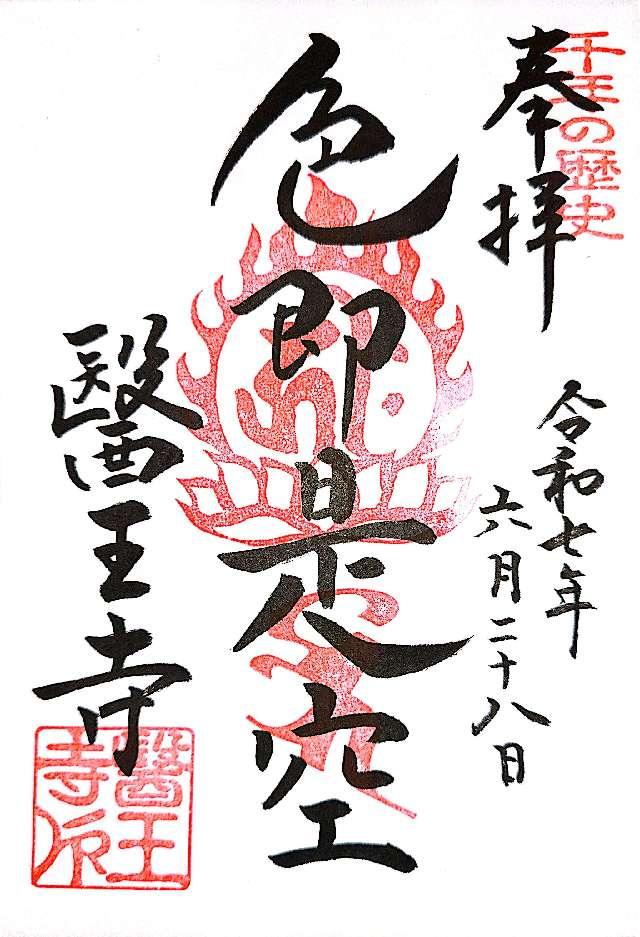 奉拝
千年の歴史
令和七年
六月二十八日
色即是空
醫王寺
醫王寺印